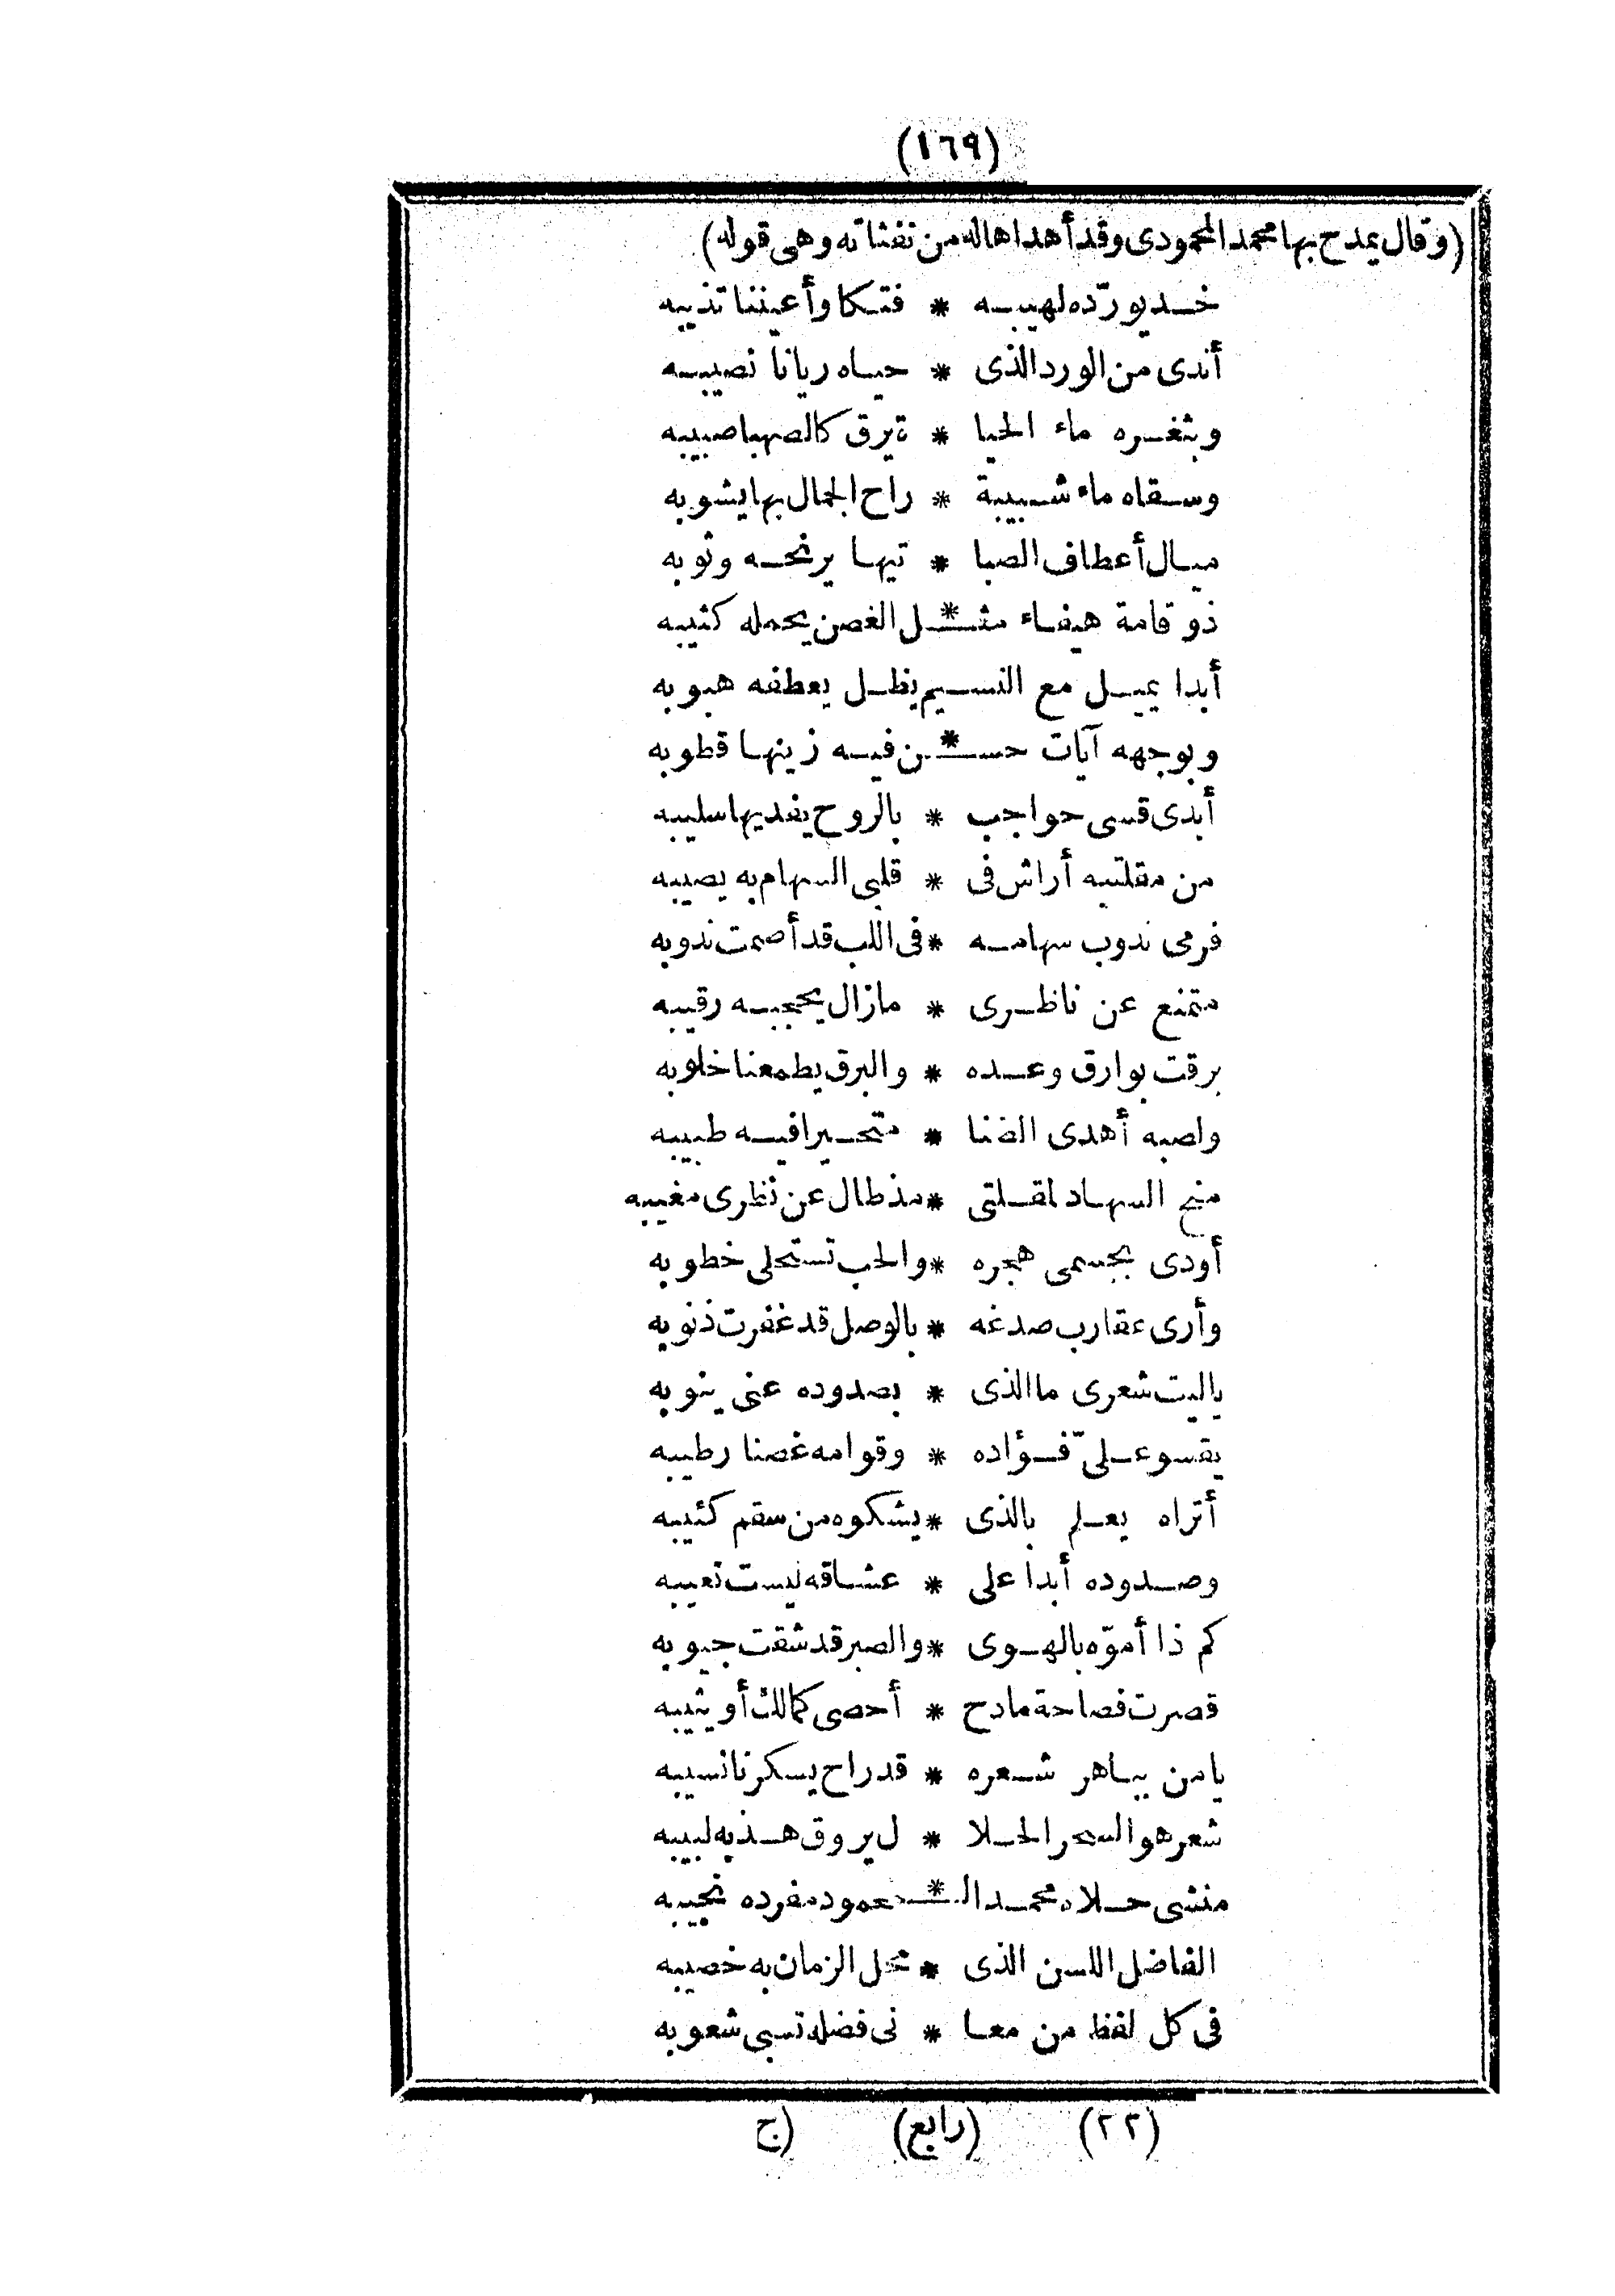 (١٦٩)
(وقال يمدح بها محمد المحمودى وقد أهداها له من نفثاته وهى قوله)
خد يورّده لهيبه * فتكا وأعيننا تذيبه
أندى من الورد الذى * حياه ريانا نصيبه
وبثغره ماء الحيا * ة يرق كالصهبا صبيبه
وسقاه ماء شبيبة * راح الجمال بها يشوبه
ميال أعطاف الصبا * تيها يرنحه وثوبه
ذو قامة هيفاء مثـ * ـل الغصن يحمله كثيبه
أبدا يميل مع النسيم يظل يعطفه هبوبه
وبوجهه آيات حسـ * ـن فيه زينها قطوبه
أبدى قسى حواجب * بالروح يفديها سليبه
من مقلتيه أراش فى * قلبى السهام به يصيبه
فرمى ندوب سهامه * فى اللب قد أصمت ندوبه
متمنع عن ناظرى * مازال يحجبه رقيبه
برقت بوارق وعده * والبرق يطمعنا خلوبه
واصبه أهدى الضنا * متحيرا فيه طبيبه
منح السهاد لمقلتى * مذ طال عن نظرى مغيبه
أودى بجسمى هجره * والحب تستحلى خطوبه
وأرى عقارب صدغه * بالوصل قد غفرت ذنوبه
ياليت شعرى ما الذى * بصدوده عنى ينوبه
يقسو علىّ فؤاده * وقوامه غصنا رطيبه
أتراه يعلم بالذى * يشكوه من سقم كئيبه
وصدوده أبدا على * عشاقه ليست تعيبه
كم ذا أموّه بالهوى * والصبر قد شقت جيوبه
قصرت فصاحة مادح * أحصى كمالك أو يثيبه
يا من بباهر شعره * قد راح يسكرنا نسيبه
شعر هو السحر الحلا * ل يروق هذبه لبيبه
منشى حلاه محمد الـ * ـمحمود مفرده نجيبه
الفاضل اللسن الذى * محل الزمان به خصيبه
فى كل لفظ من معا * نى فضله تسبى شعوبه
(٢٢) (رابع) (ج